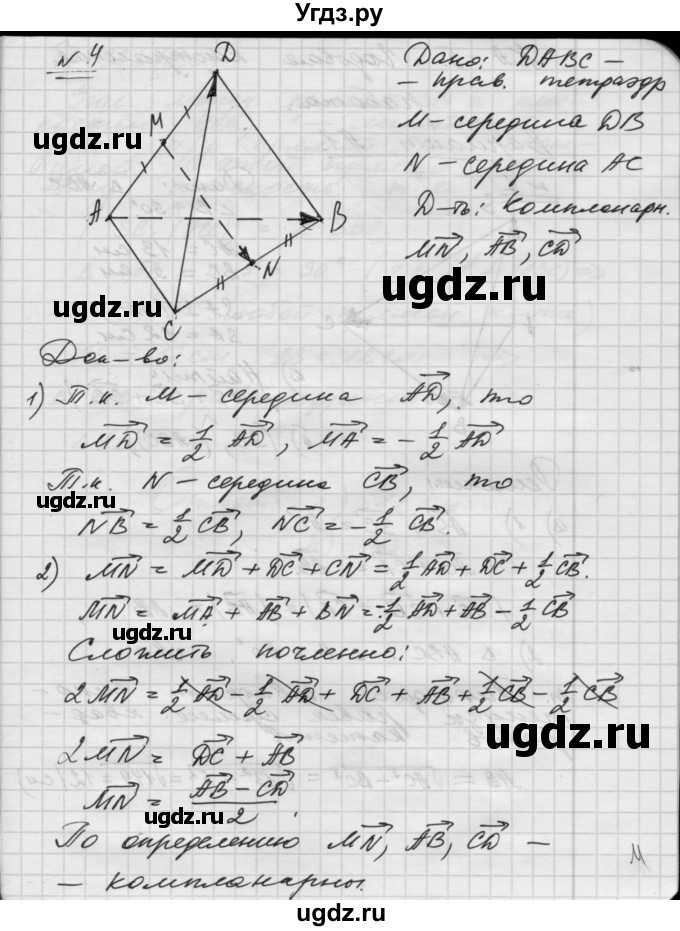 Угдз.ру
№ 4
Дано: DABC –
– прав. тетраэдр
M – середина DB
N – середина AC
Д-ть: Компланарн.
MN, AB, CD
D
M
A
B
N
C
ugdz.ru
ugdz.ru
ugdz.ru
Док-во:
1) Т.к. M – середина AD, то
MD = 1/2 AD, MA = – 1/2 AD
Т.к. N – середина CB, то
ugdz.ru
NB = 1/2 CB, NC = – 1/2 CB.
2) MN = MD + DC + CN = 1/2 AD + DC + 1/2 CB.
MN = MA + AB + BN = -1/2 AD + AB – 1/2 CB
ugdz.ru
Сложить почленно:
2MN = 1/2 AD – 1/2 AD + DC + AB + 1/2 CB – 1/2 CB
ugdz.ru
2MN = DC + AB
MN = (AB – CD)/2.
ugdz.ru
По определению MN, AB, CD –
– компланарны.
ugdz.ru
ugdz.ru